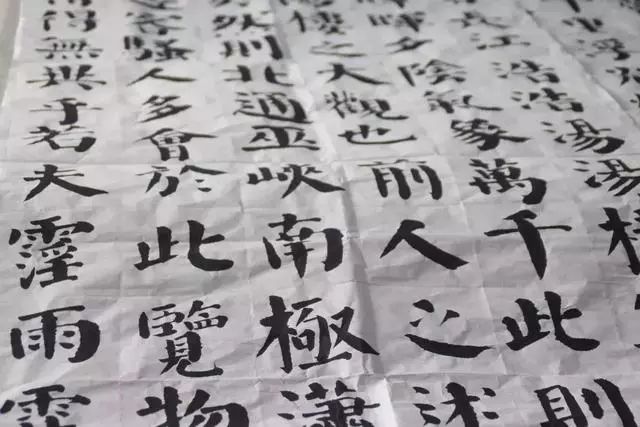 長江浩浩湯湯
暉夕陰氣象萬千此則
樓之大觀也前人之述
然則北通巫峽南極瀟
客騷人多會於此覽物
得無異乎若夫霪雨霏